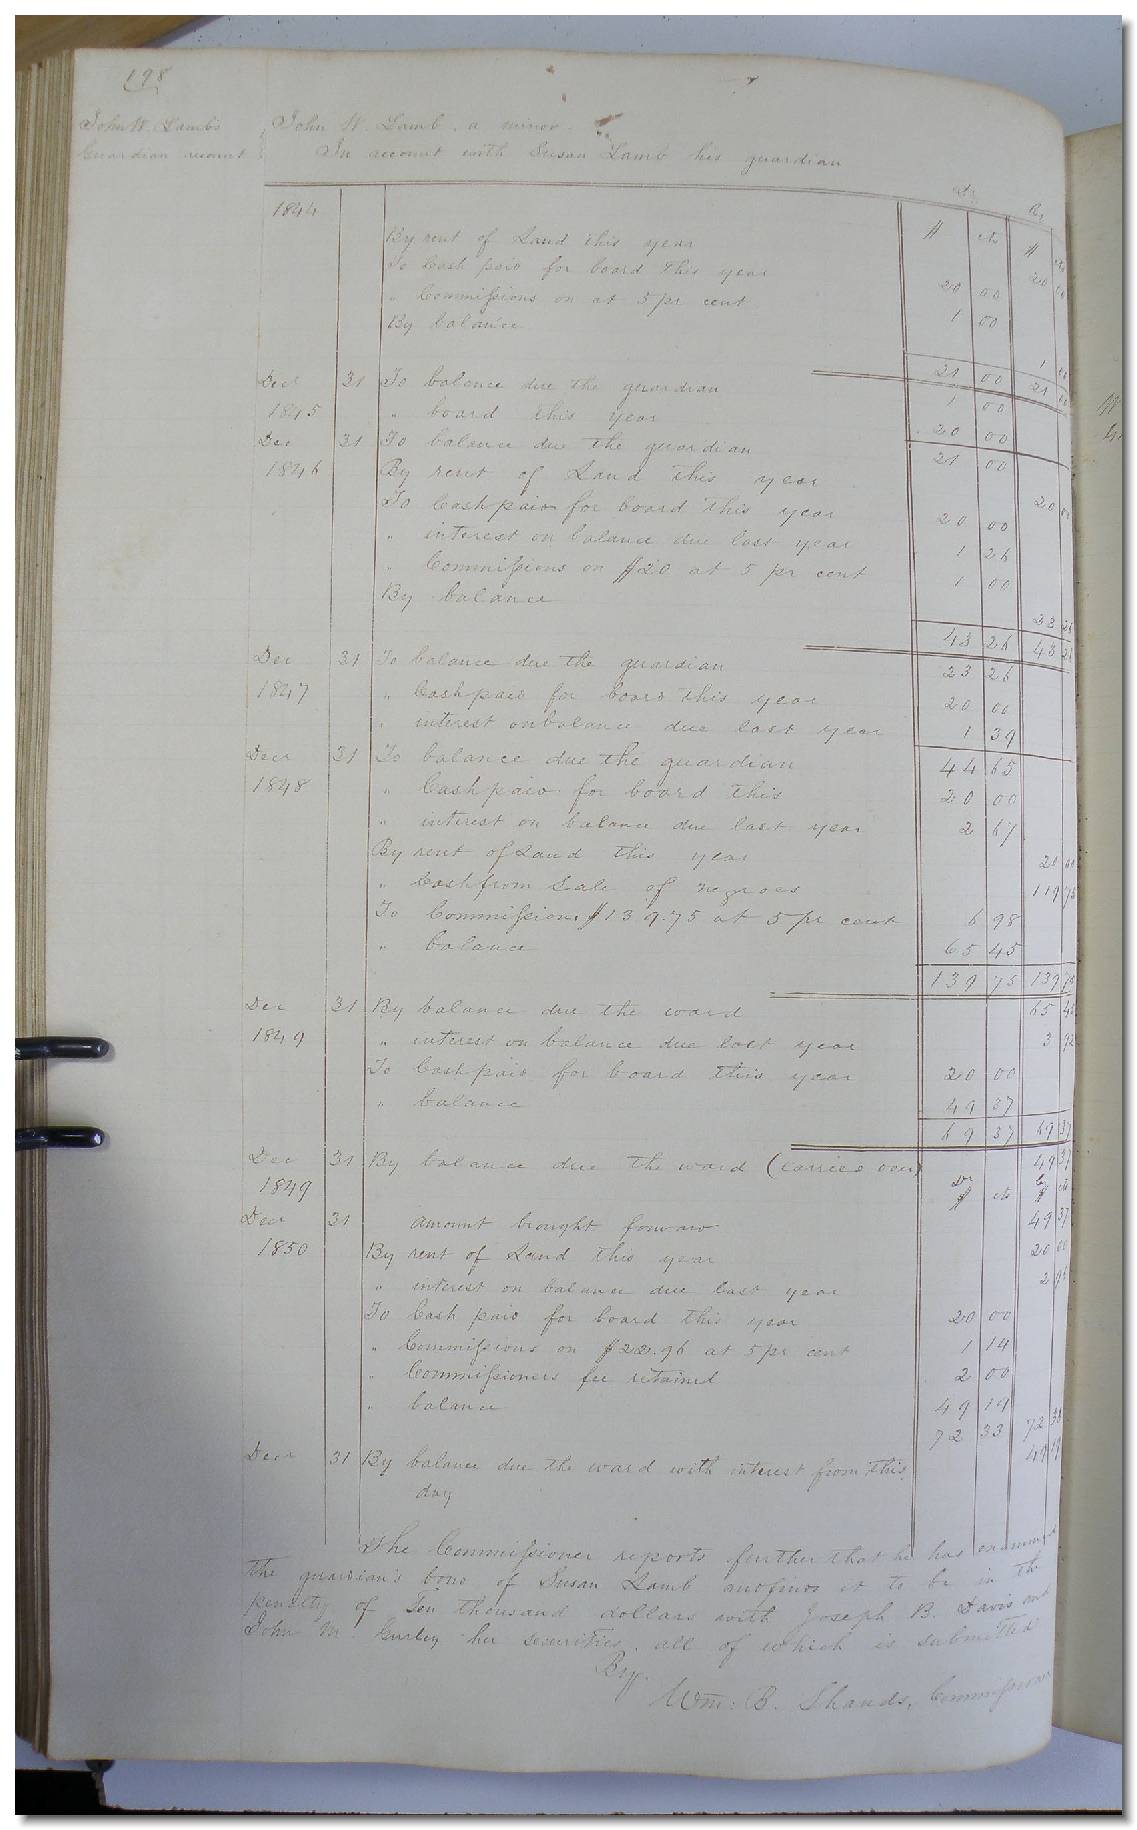 198
John W. Lamb's
Guardian account
John W. Lamb, a minor.
In account with Susan Lamb his guardian
Dr Cr
1844 $ cts $ cts
By rent of Land this year 20 00
To Cash paid for board this year 20 00
" Commissions on at 5 pr cent 1 00
By balance 1 00
21 00 21 00
Decr 31 To balance due the guardian 1 00
1845 " board this year 20 00
Dec 31 To balance due the guardian 21 00
1846 By rent of Land this year 20 00
To Cash paid for board this year 20 00
" interest on balance due last year 1 26
" Commissions on $20 at 5 pr cent 1 00
By balance 23 26
43 26 43 26
Dec 31 To balance due the guardian 23 26
1847 " Cash paid for board this year 20 00
" interest on balance due last year 1 39
Decr 31 To balance due the guardian 44 65
1848 " Cash paid for board this 20 00
" interest on balance due last year 2 67
By rent of Land this year 20 00
" Cash from Sale of negroes 119 75
To Commissions $139.75 at 5 pr cent 6 98
" balance 65 45
139 75 139 75
Dec 31 By balance due the ward 65 45
1849 " interest on balance due last year 3 92
To Cash paid for board this year 20 00
" balance 49 37
69 37 69 37
Dec 31 By balance due the ward (carried over) 49 37
1849 Dr $ cts Cr $ cts
Decr 31 Amount brought forward 49 37
1850 By rent of Land this year 20 00
" interest on balance due last year 2 96
To Cash paid for board this year 20 00
" Commissions on $22.96 at 5 pr cent 1 14
" Commissioners fee retained 2 00
" balance 49 19
72 33 72 33
Decr 31 By balance due the ward with interest from this 49 19
day
The Commissioner reports further that he has examined
the guardian's bond of Susan Lamb and finds it to be in the
penalty of Ten thousand dollars with Joseph B. Davis and
John M. Gurley her securities. all of which is submitted
By.
Wm: B. Shands, Commissioner